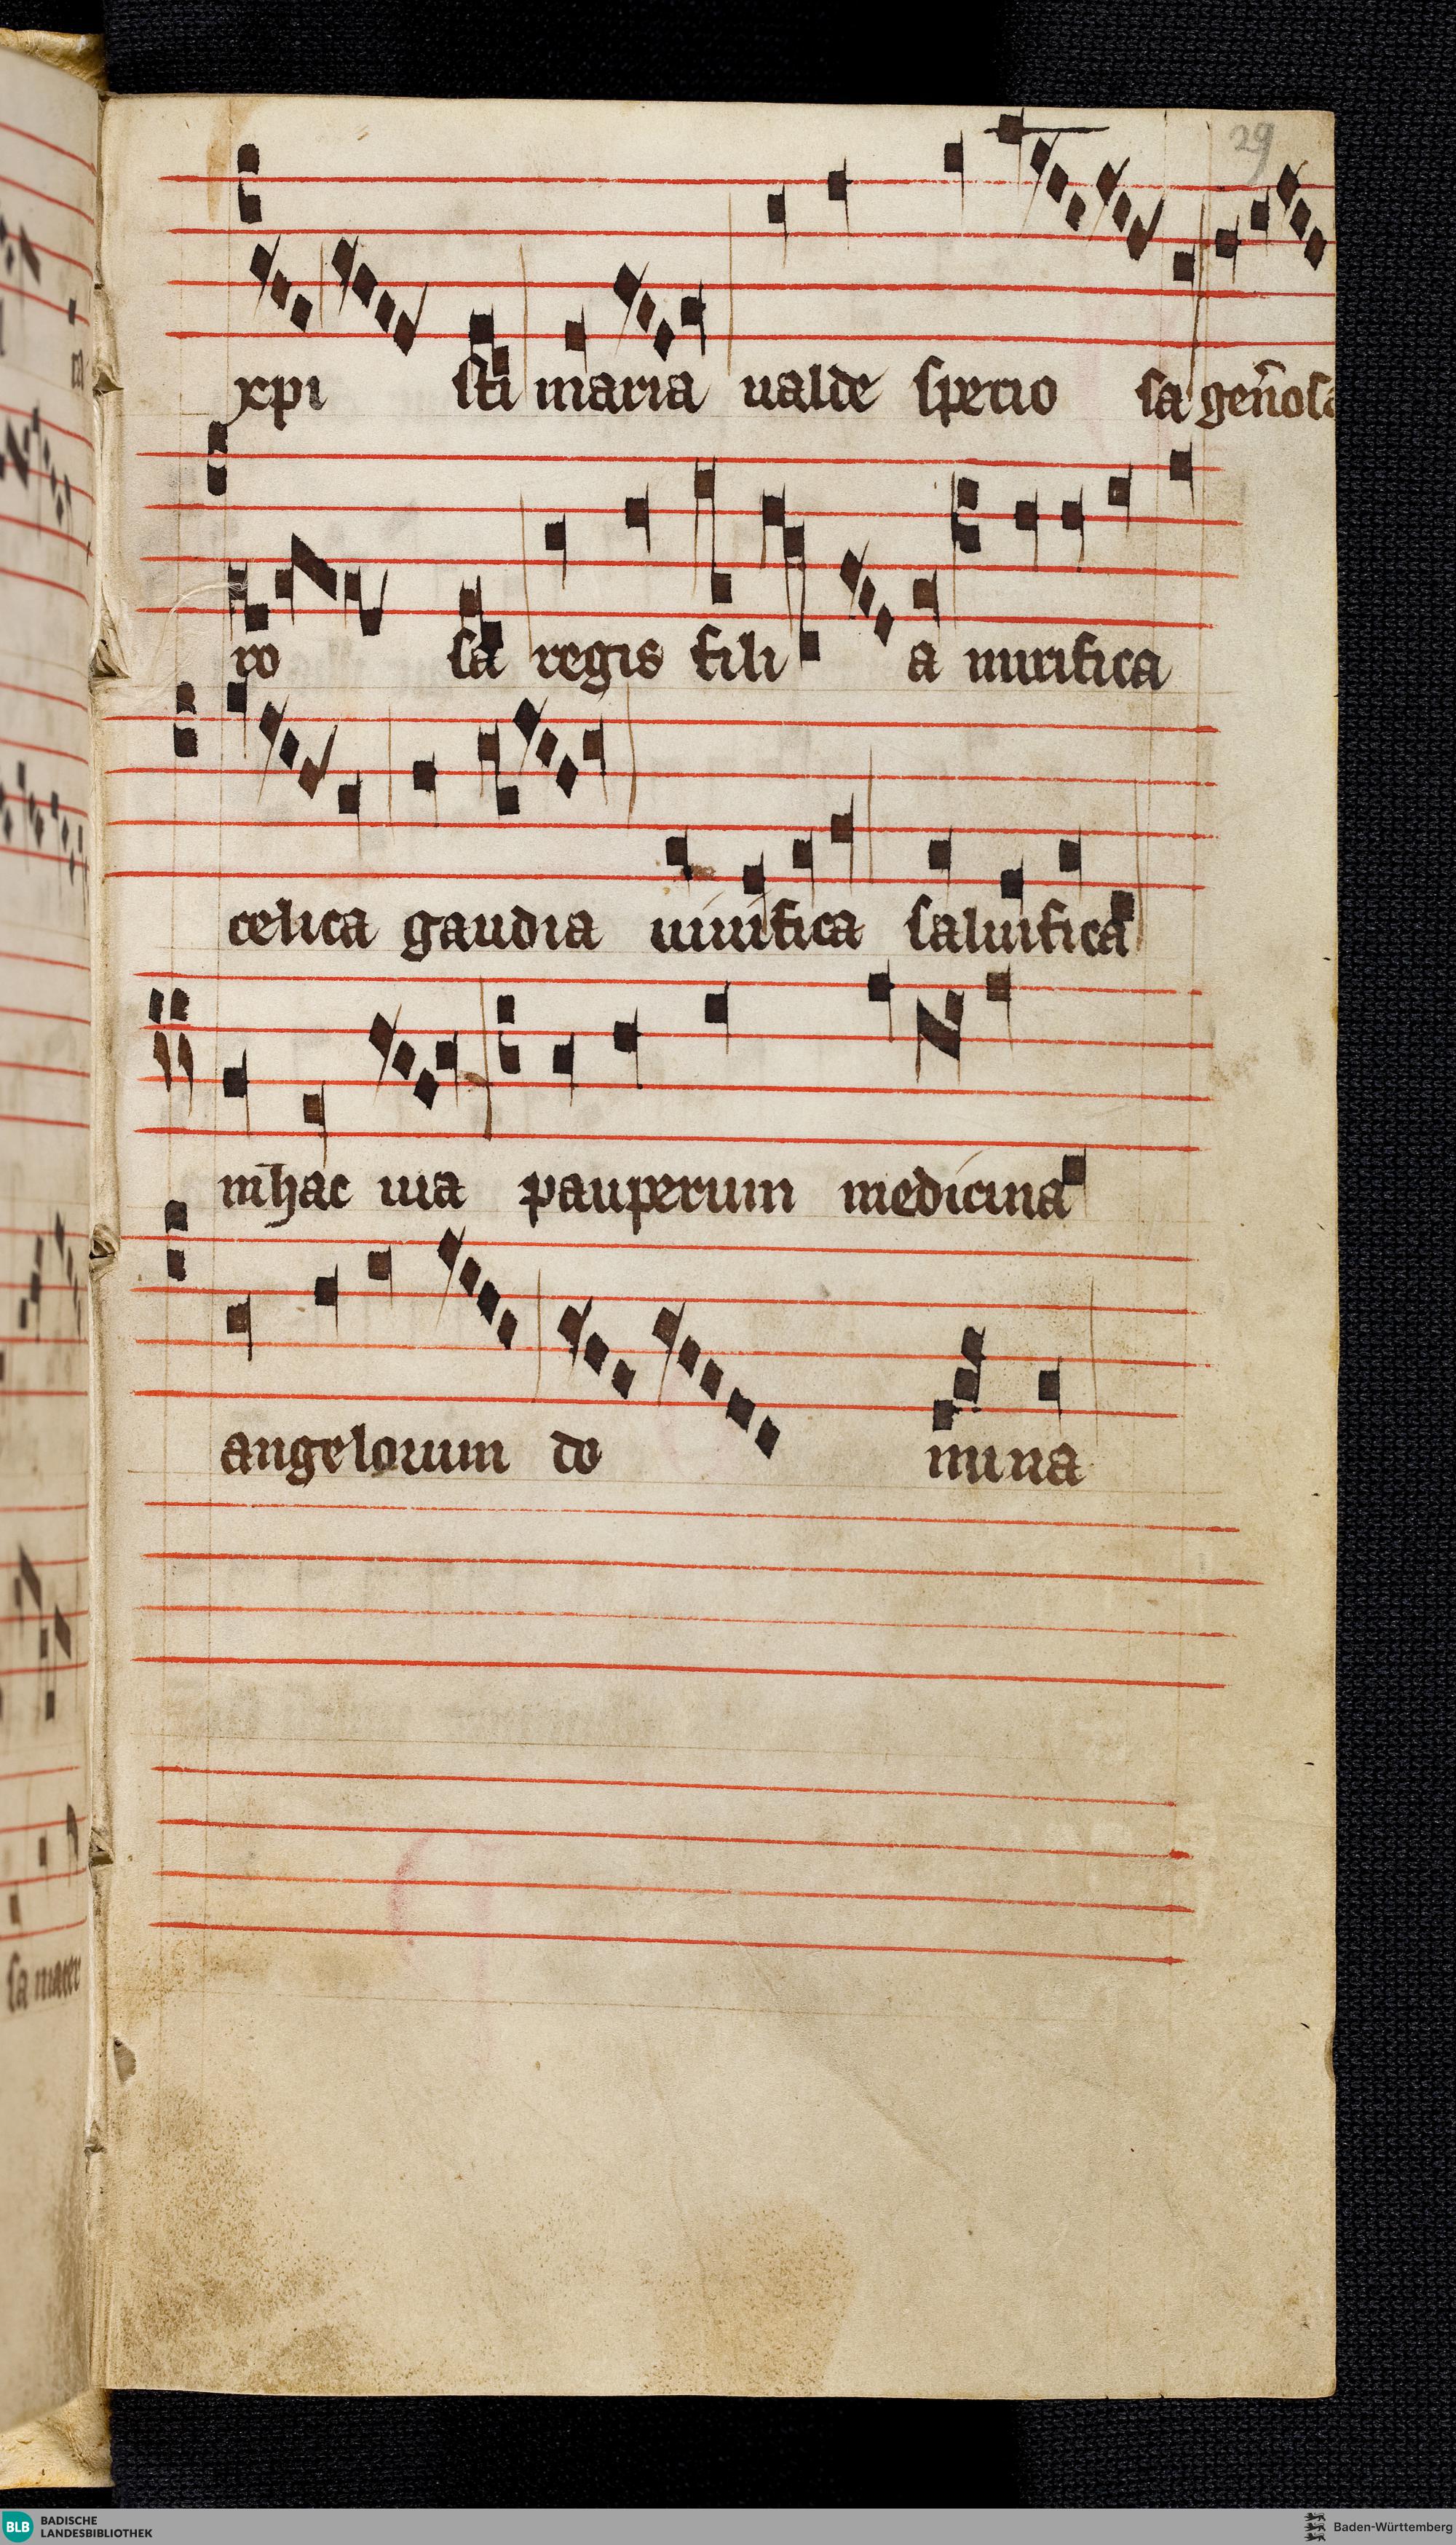 29
xpi sti maria ualde specio sa gen̄osa
ro sa regis fili a mirifica
celica gaudia uiuifica saluifica
in hac uia pauperum medicina
angelorum do mina
sa mater
BLB BADISCHE LANDESBIBLIOTHEK
Baden-Württemberg